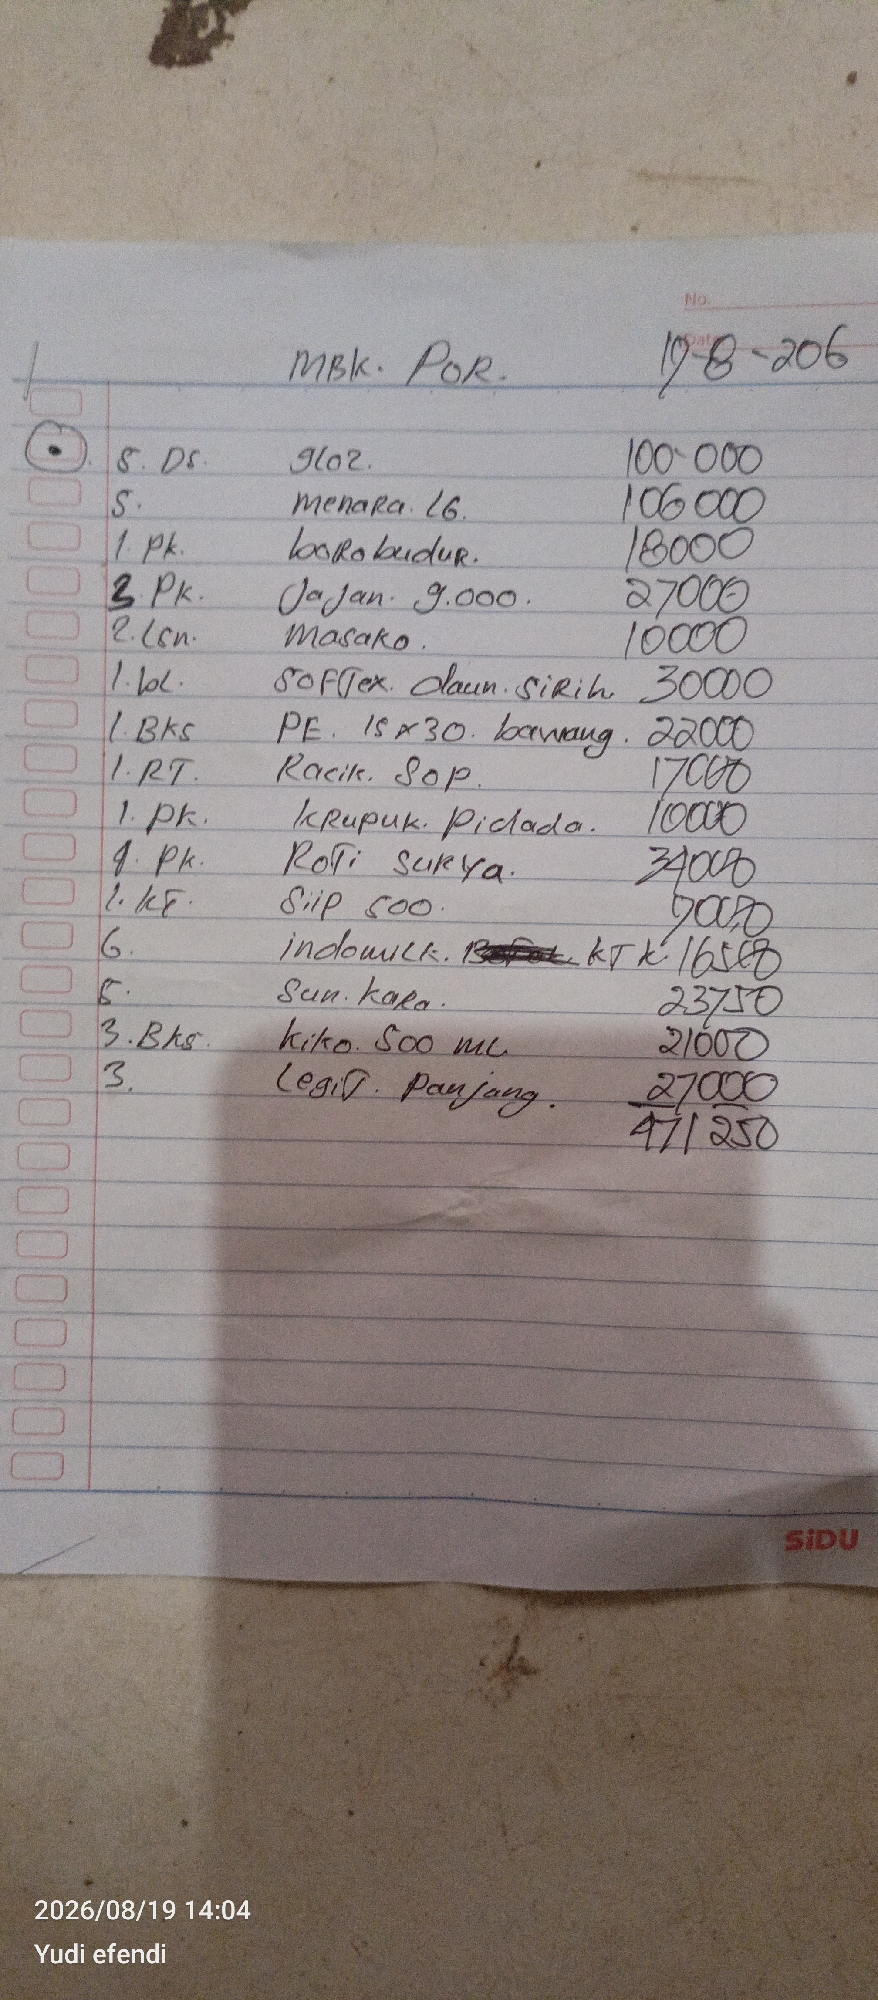 No.
Date
MBK. POR. 19-8-206
5. DS. gloz. 100.000
5. menara. 16. 106000
1. Pk. borobudur. 18000
3 Pk. Jajan. 9.000. 27000
2. lsn. masako. 10000
1. bl. softex. daun. sirih. 30000
1. Bks PE. 15 x 30. bawang. 22000
1. RT. Racik. Sop. 17000
1. Pk. krupuk. Pidada. 10000
4. Pk. Roti surya. 34000
1. kt. Siip 500. 9000
6. indomilk. kTk. 16500
5. Sun. kara. 23750
3. Bks. kiko. 500 ml 21000
3. Legit. panjang. 27000
471250
SiDU
2026/08/19 14:04
Yudi efendi